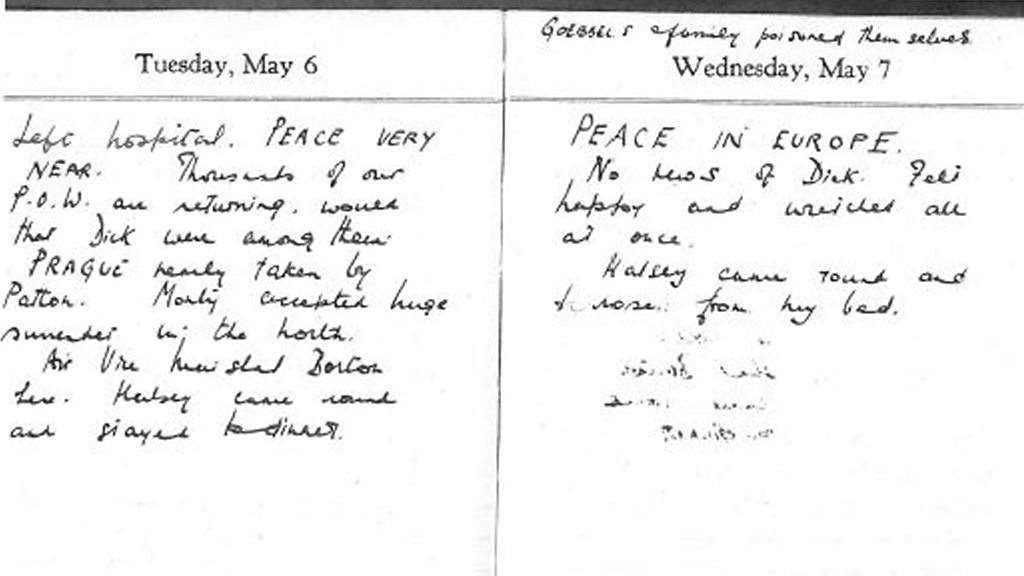 Tuesday, May 6
Left hospital. PEACE VERY
NEAR. Thousands of our
P.O.W. are returning. would
that Dick were among them.
PRAGUE nearly taken by
Patton. Monty accepted huge
surrender in the north.
Air Vice Marshal Borton
here. Halsey came round
and stayed to dinner.
Goebbels & family poisoned themselves
Wednesday, May 7
PEACE IN EUROPE.
No news of Dick. Felt
happy and wretched all
at once.
Halsey came round and
I rose from my bed.